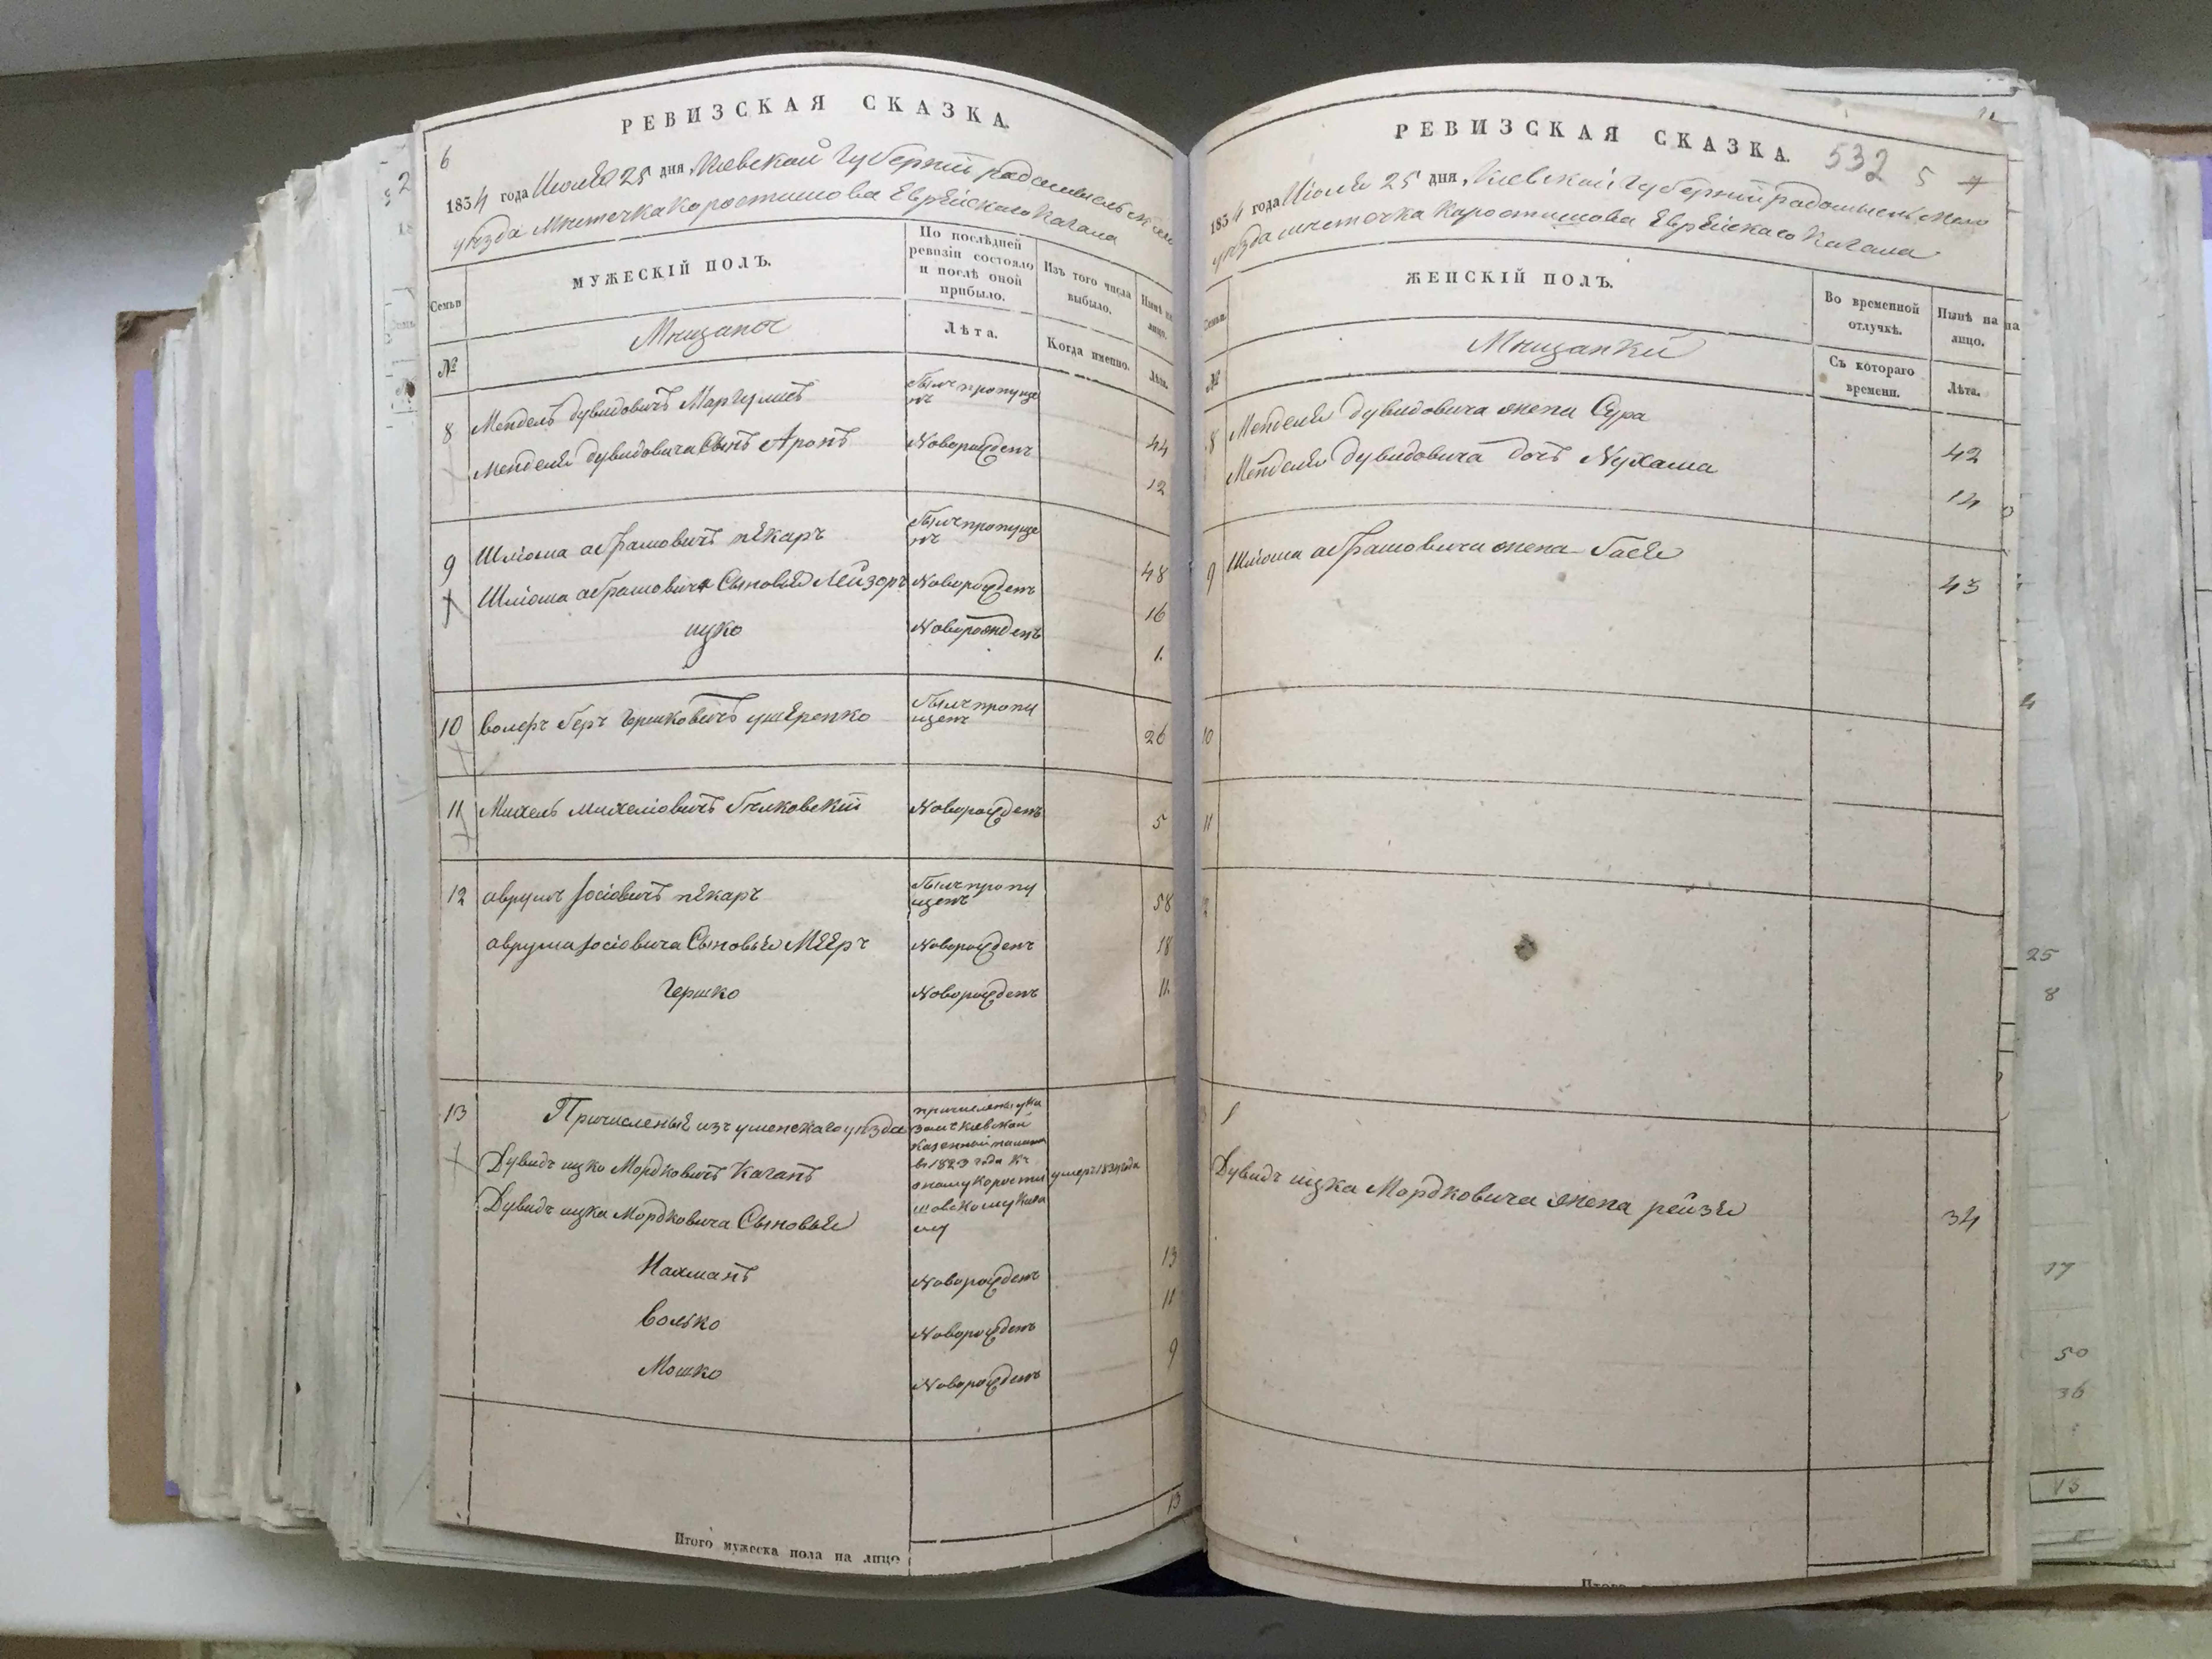 РЕВИЗСКАЯ СКАЗКА.
6
1834 года Июля 25 дня Киевской Губерніи Радомысльскаго
уѣзда Мѣстечка Коростишова Еврейскаго Кагала
Семьи
МУЖЕСКІЙ ПОЛЪ.
По послѣдней ревизіи состояло и послѣ оной прибыло.
Изъ того числа выбыло.
Нынѣ на лицо.
№
Мищанъ
Лѣта.
Когда именно.
Лѣта.
8 Мендель Дувидовичъ Маргулисъ былъ пропущенъ 44
Менделя Дувидовича Сынъ Аронъ Новорожденъ 12
9 Шліома абрамовичъ пекаръ былъ пропущенъ 48
Шліома абрамовича Сыновья Лейзоръ Новорожденъ 16
ицко Новорожденъ 1.
10 волфъ беръ гершковичъ ушеренко былъ пропущенъ 26
11 Михель михеліовичъ Билковскій Новорожденъ 5
12 аврумъ Іосіовичъ пекаръ былъ пропущенъ 58
аврума Іосіовича Сыновья Мееръ Новорожденъ 18
Гершко Новорожденъ 11
13 Причисленые изъ уменскаго уѣзда
причислены указомъ киевской
казенной палаты
в 1823 года къ
оному корости
шовскому кага
лу
Дувидъ ицко Мордковичъ Каганъ умеръ 1834 года
Дувидъ ицка Мордковича Сыновья
Нахманъ Новорожденъ 13
волько Новорожденъ 11
Мошко Новорожденъ 9
13
Итого мужеска пола на лицо
РЕВИЗСКАЯ СКАЗКА.
532 5 4
1834 года Июля 25 дня, Киевской Губерніи Радомысльскаго
уѣзда мѣстечка Коростишова Еврейскаго Кагала
Семьи.
ЖЕНСКІЙ ПОЛЪ.
Во временной отлучкѣ.
Нынѣ на лицо.
№
Мищанки
Съ котораго времени.
Лѣта.
8 Менделя Дувидовича жена Сура 42
Менделя Дувидовича дочь Нухама 14
9 Шліома абрамовича жена бася 43
10
11
Дувидъ ицка Мордковича жена рейзя 34
25
8
17
50
36
13